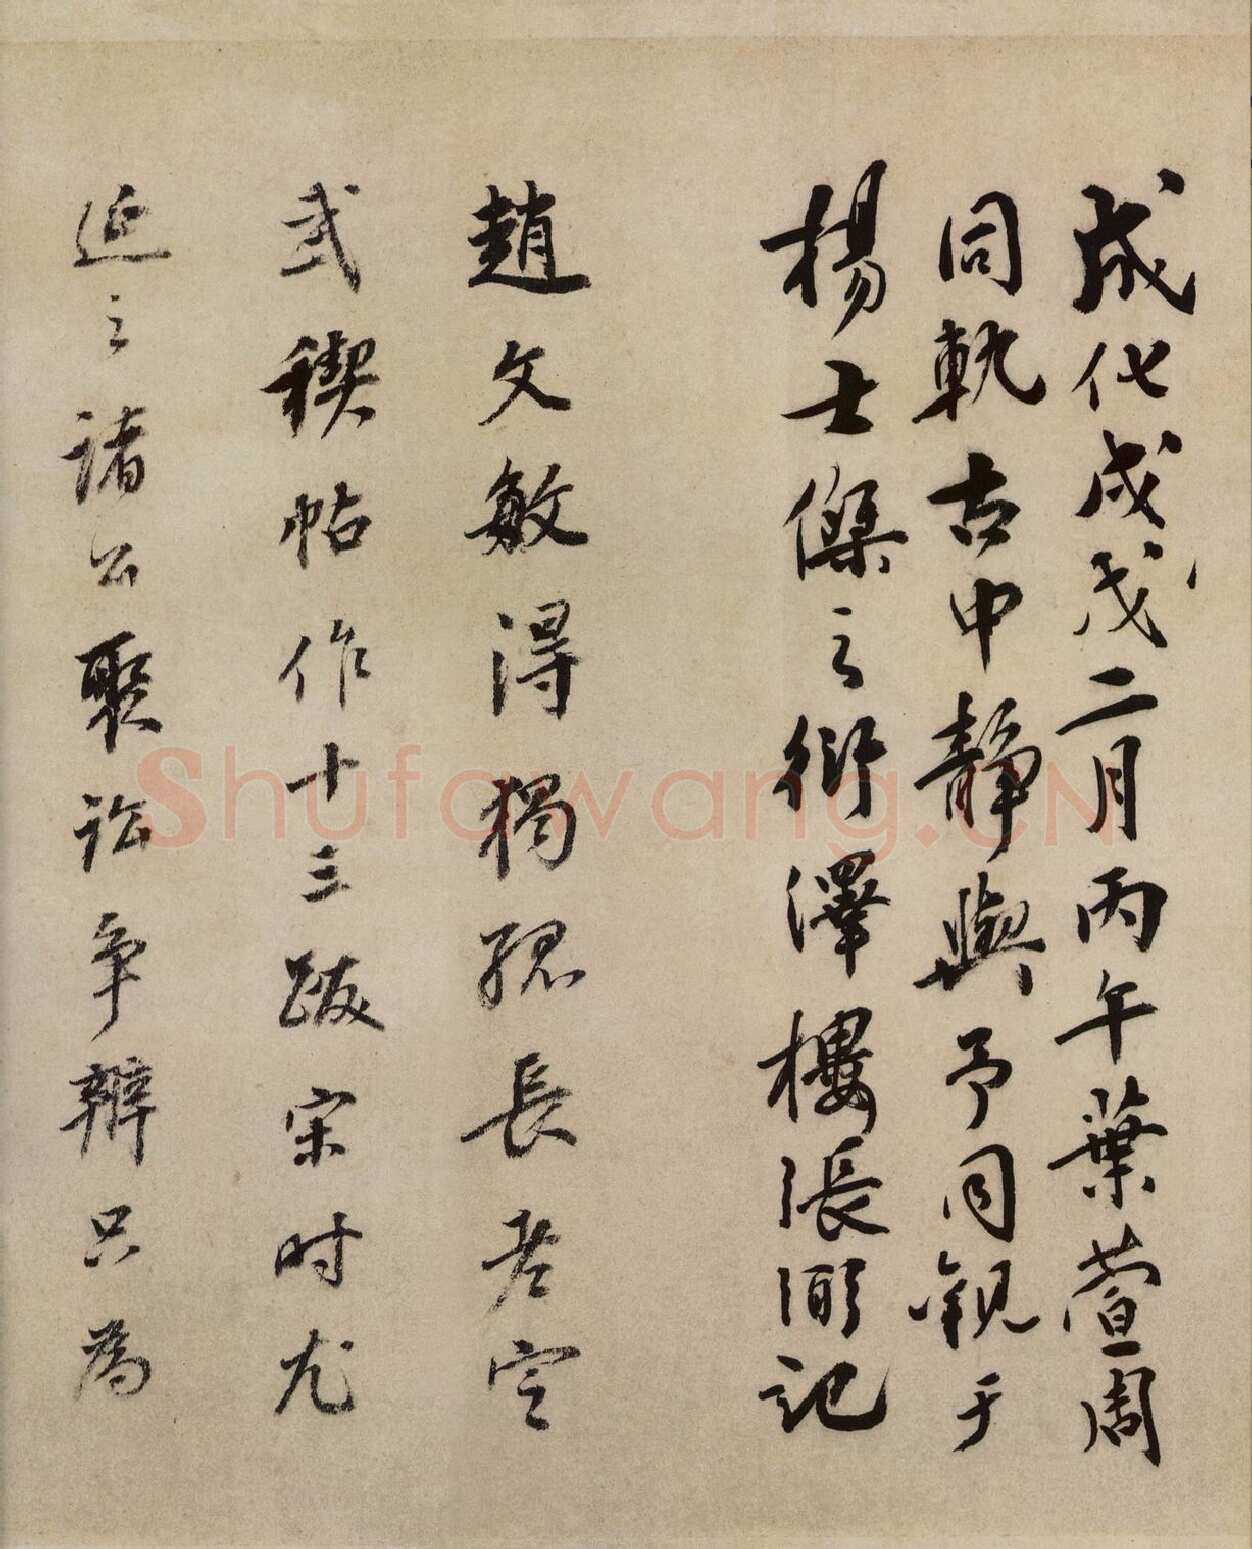 成化戌戊二月丙午葉萱周
同軌古中靜與予同觀于
楊士傑之衍澤樓張弼記
趙文敏得獨孤長老定
武禊帖作十三跋宋时尤
延之諸公聚訟争辨只為
Shufawang.CN